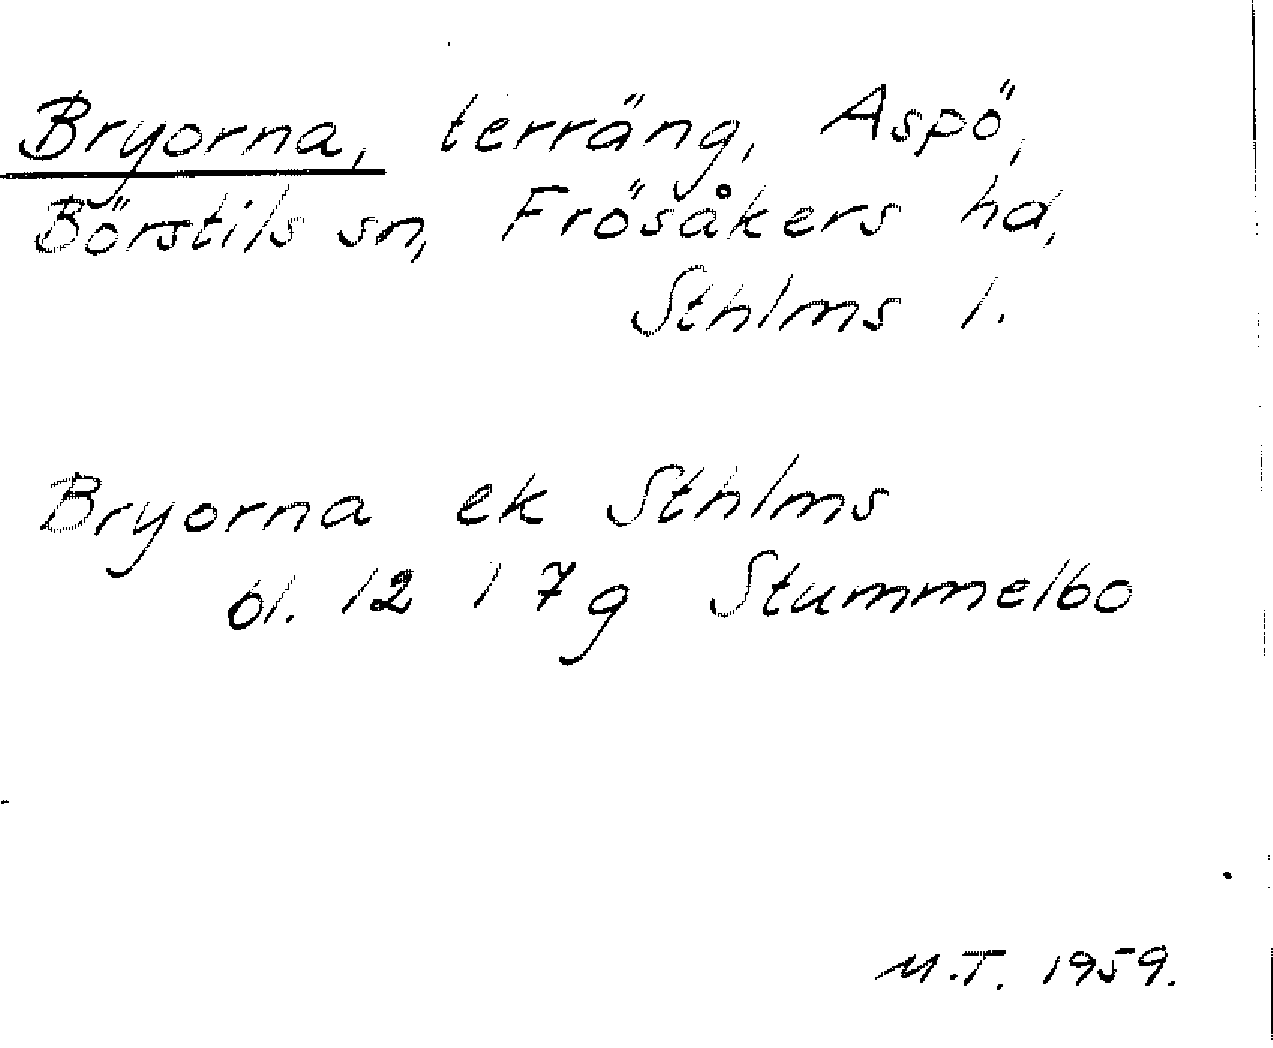 Bryorna, terräng, Aspö,
Börstils sn, Frösåkers hd,
Sthlms l.
Bryorna ek Sthlms
bl. 12 I 7g Stummelbo
M.T. 1959.